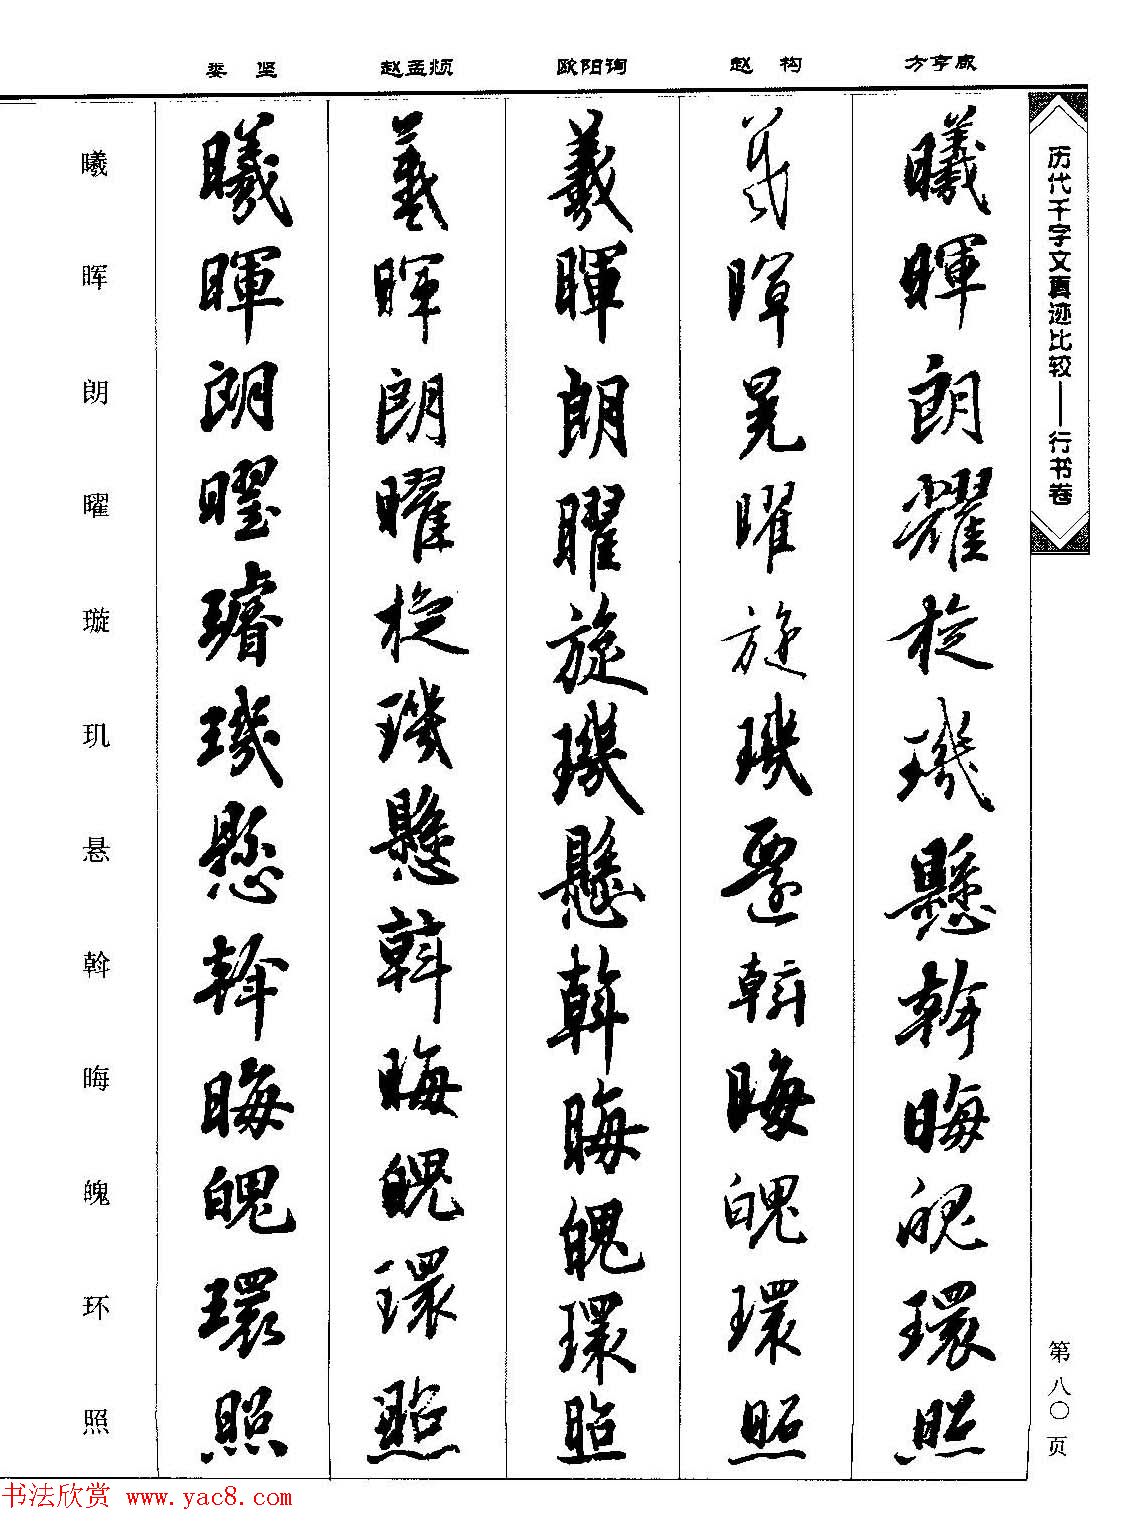 娄坚 赵孟頫 欧阳询 赵构 方亨咸
历代千字文真迹比较——行书卷
曦 羲 羲 羲 曦 曦
晖 暉 暉 暉 暉 暉
朗 朗 朗 朗 晃 朗
曜 曜 曜 曜 曜 耀
璇 璿 旋 旋
玑 璣 璣 璣 璣 璣
悬 懸 懸 懸 還 懸
斡 斡 斡 斡 斡 斡
晦 晦 晦 晦 晦 晦
魄 魄 魄 魄 魄 魄
环 環 環 環 環 環
照 照 照 照 照 照
第八〇页
书法欣赏 www.yac8.com